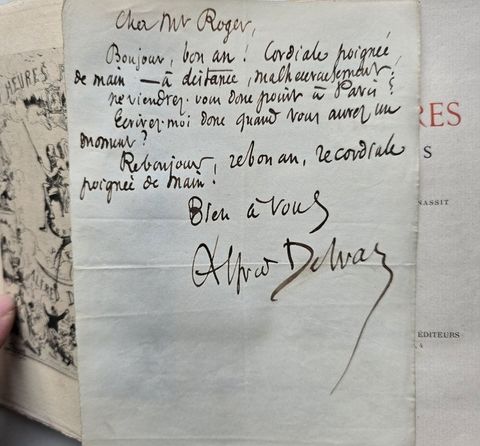 Cher Mr Roger,
Bonjour, bon an ! Cordiale poignée
de main — à distance, malheureusement.
ne viendrez-vous donc point à Paris ?
Ecrivez-moi donc quand vous aurez un
moment ?
Rebonjour, rebon an, recordiale
poignée de main !
Bien à vous
Alfred Delvau
HEURES
RES
S
NASSIT
ÉDITEURS
4